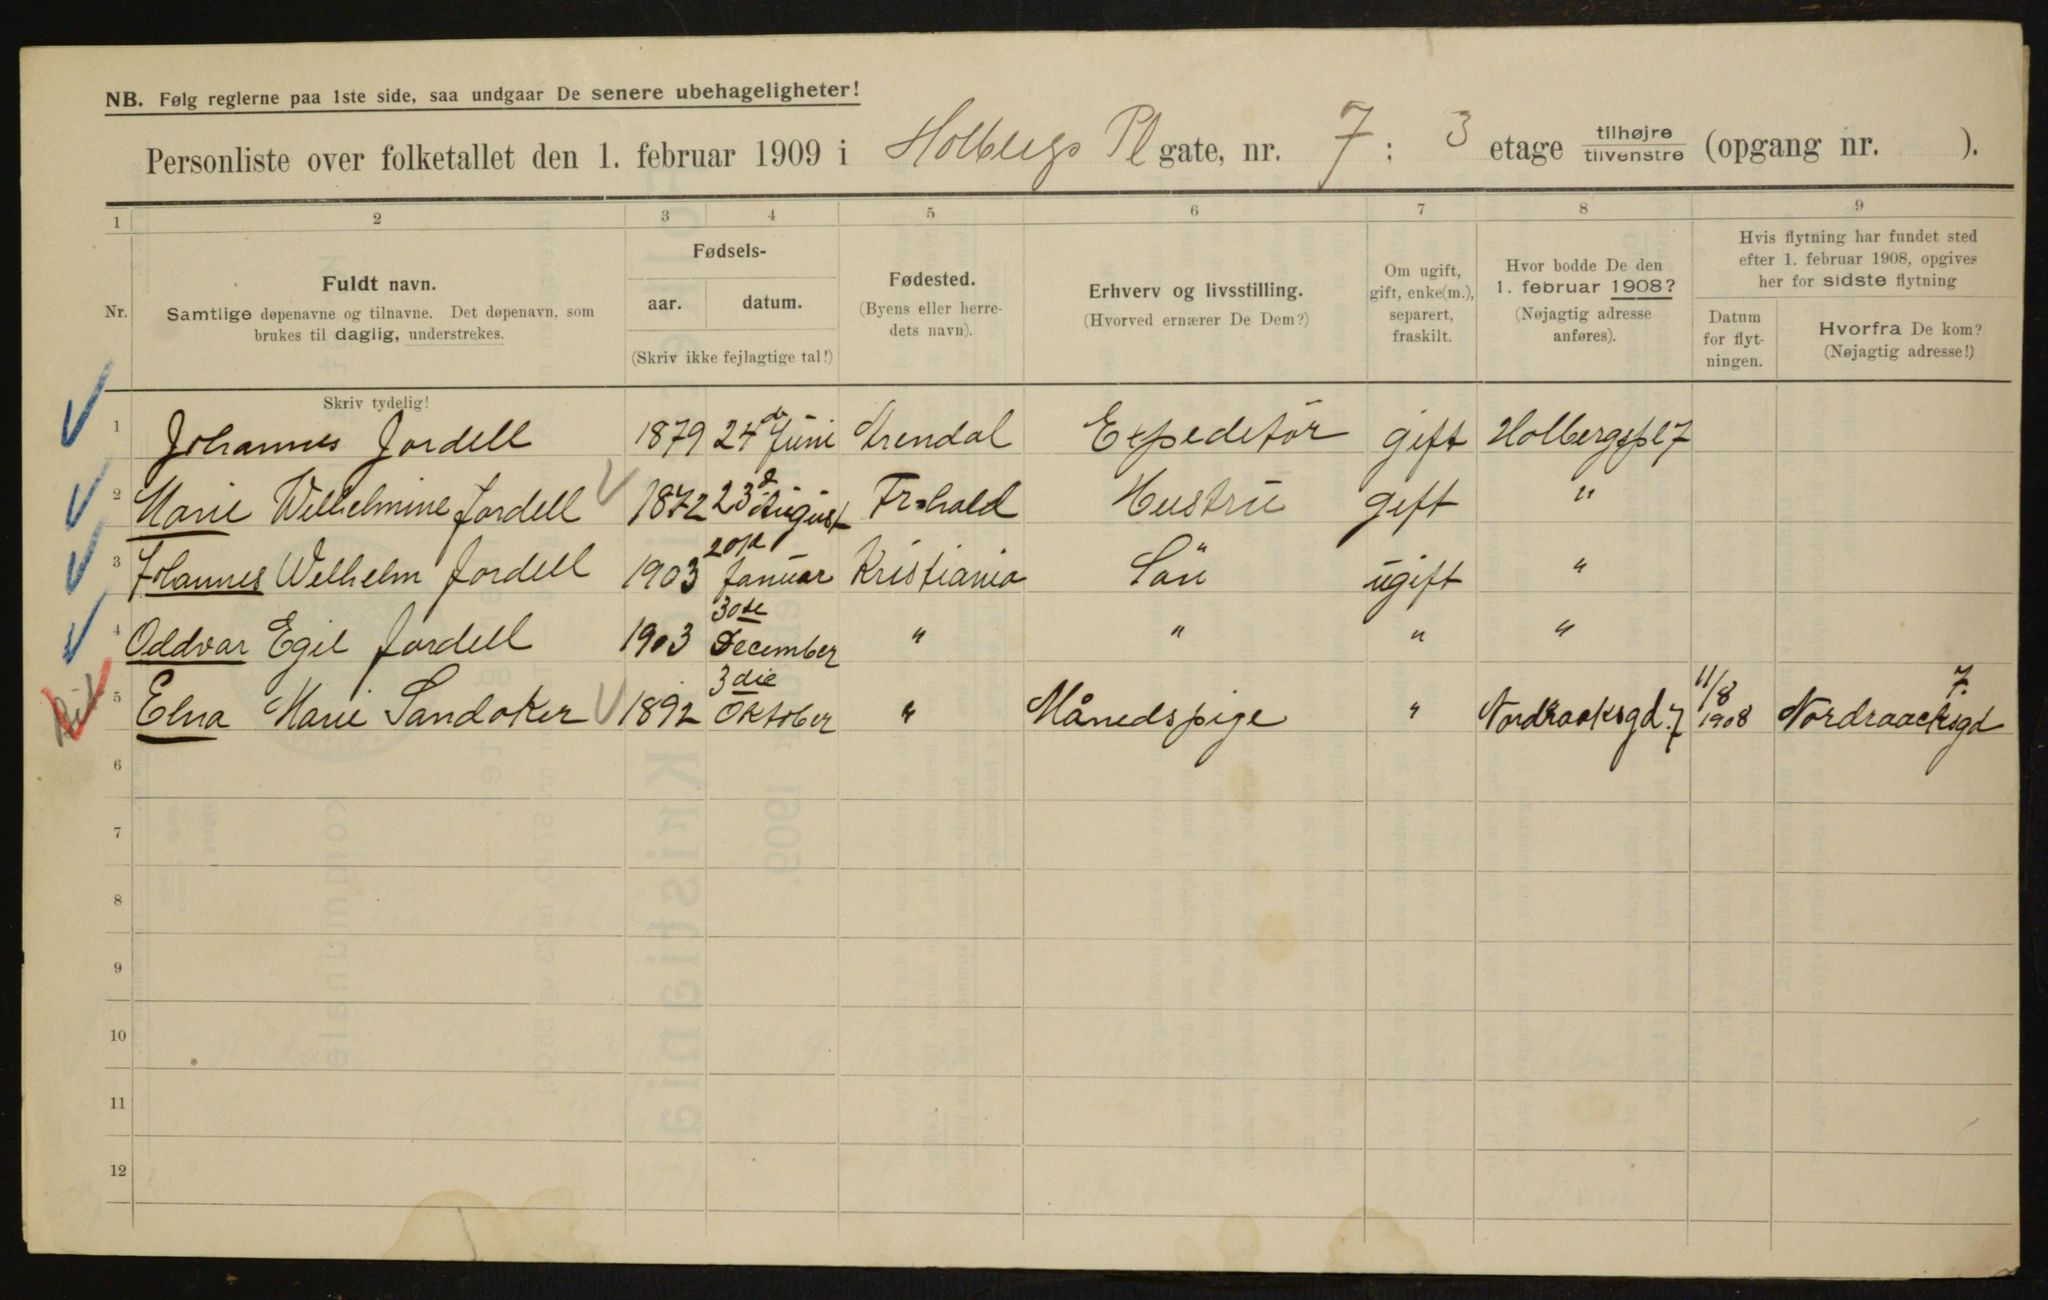 NB. Følg reglerne paa 1ste side, saa undgaar De senere ubehageligheter!
Personliste over folketallet den 1. februar 1909 i Holbergs Pl gate, nr. 7 ; 3 etage tilhøjre/tilvenstre (opgang nr. ).
1 2 3 4 5 6 7 8 9
Nr.
Fuldt navn.
Samtlige døpenavne og tilnavne. Det døpenavn, som
brukes til daglig, understrekes.
Fødsels-
aar. datum.
(Skriv ikke fejlagtige tal!)
Fødested.
(Byens eller herre-
dets navn).
Erhverv og livsstilling.
(Hvorved ernærer De Dem?)
Om ugift,
gift, enke(m.),
separert,
fraskilt.
Hvor bodde De den
1. februar 1908?
(Nøjagtig adresse
anføres).
Hvis flytning har fundet sted
efter 1. februar 1908, opgives
her for sidste flytning
Datum
for flyt-
ningen.
Hvorfra De kom?
(Nøjagtig adresse!)
Skriv tydelig!
1 Johannes Jordell 1879 24de Juni Arendal Expeditør gift Holbergspl 7
2 Marie Wilhelmine Jordell 1872 23d August Fr.hald Hustru gift "
3 Johannes Wilhelm Jordell 1903 20de Januar Kristiania Søn ugift "
4 Oddvar Egil Jordell 1903 30de December " " " "
5 Elna Marie Sandaker 1892 3die Oktober " Månedspige " Nordraaksgd. 7 11/8 1908 Nordraacksgd 7.
6
7
8
9
10
11
12